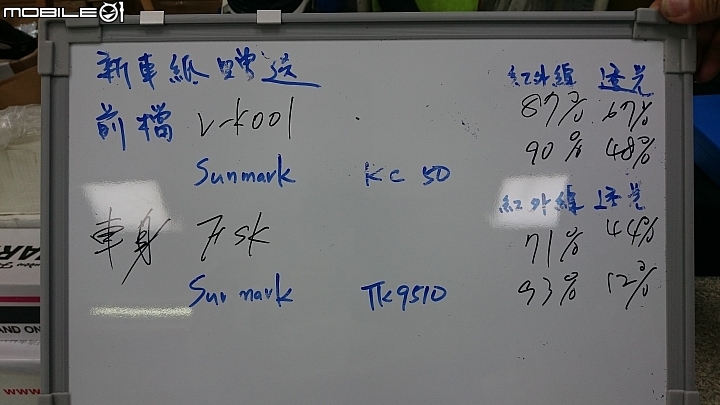 MOBILE01
新車紙 贈送
紅外線 透光
前檔 V-kool 87% 67%
Sunmark KC 50 90% 48%
紅外線 透光
車身 FSK 71% 44%
Sunmark TK9510 93% 12%
AND ON
www